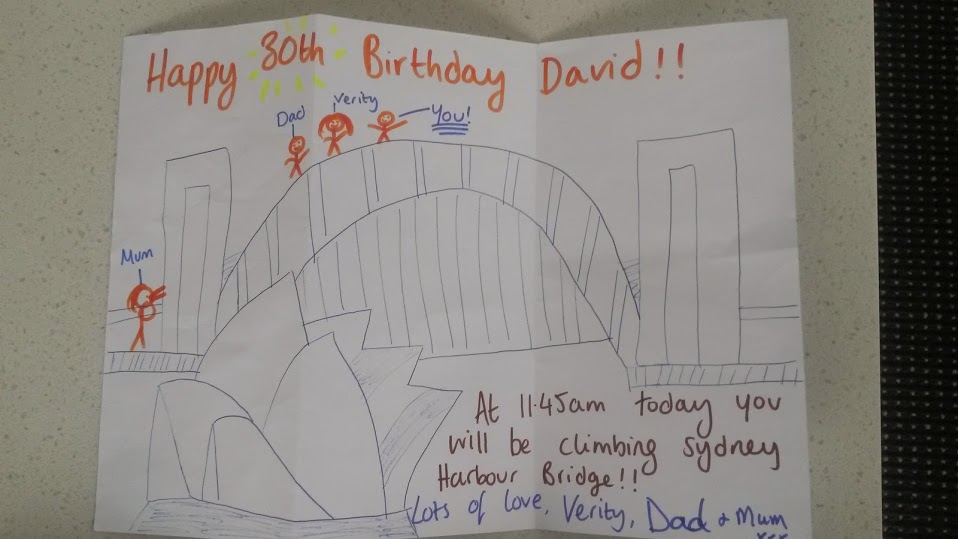 Happy 30th Birthday David!!
Dad
Verity
You!
Mum
At 11·45am today you
will be climbing Sydney
Harbour Bridge!!
Lots of love, Verity, Dad + Mum
xxx